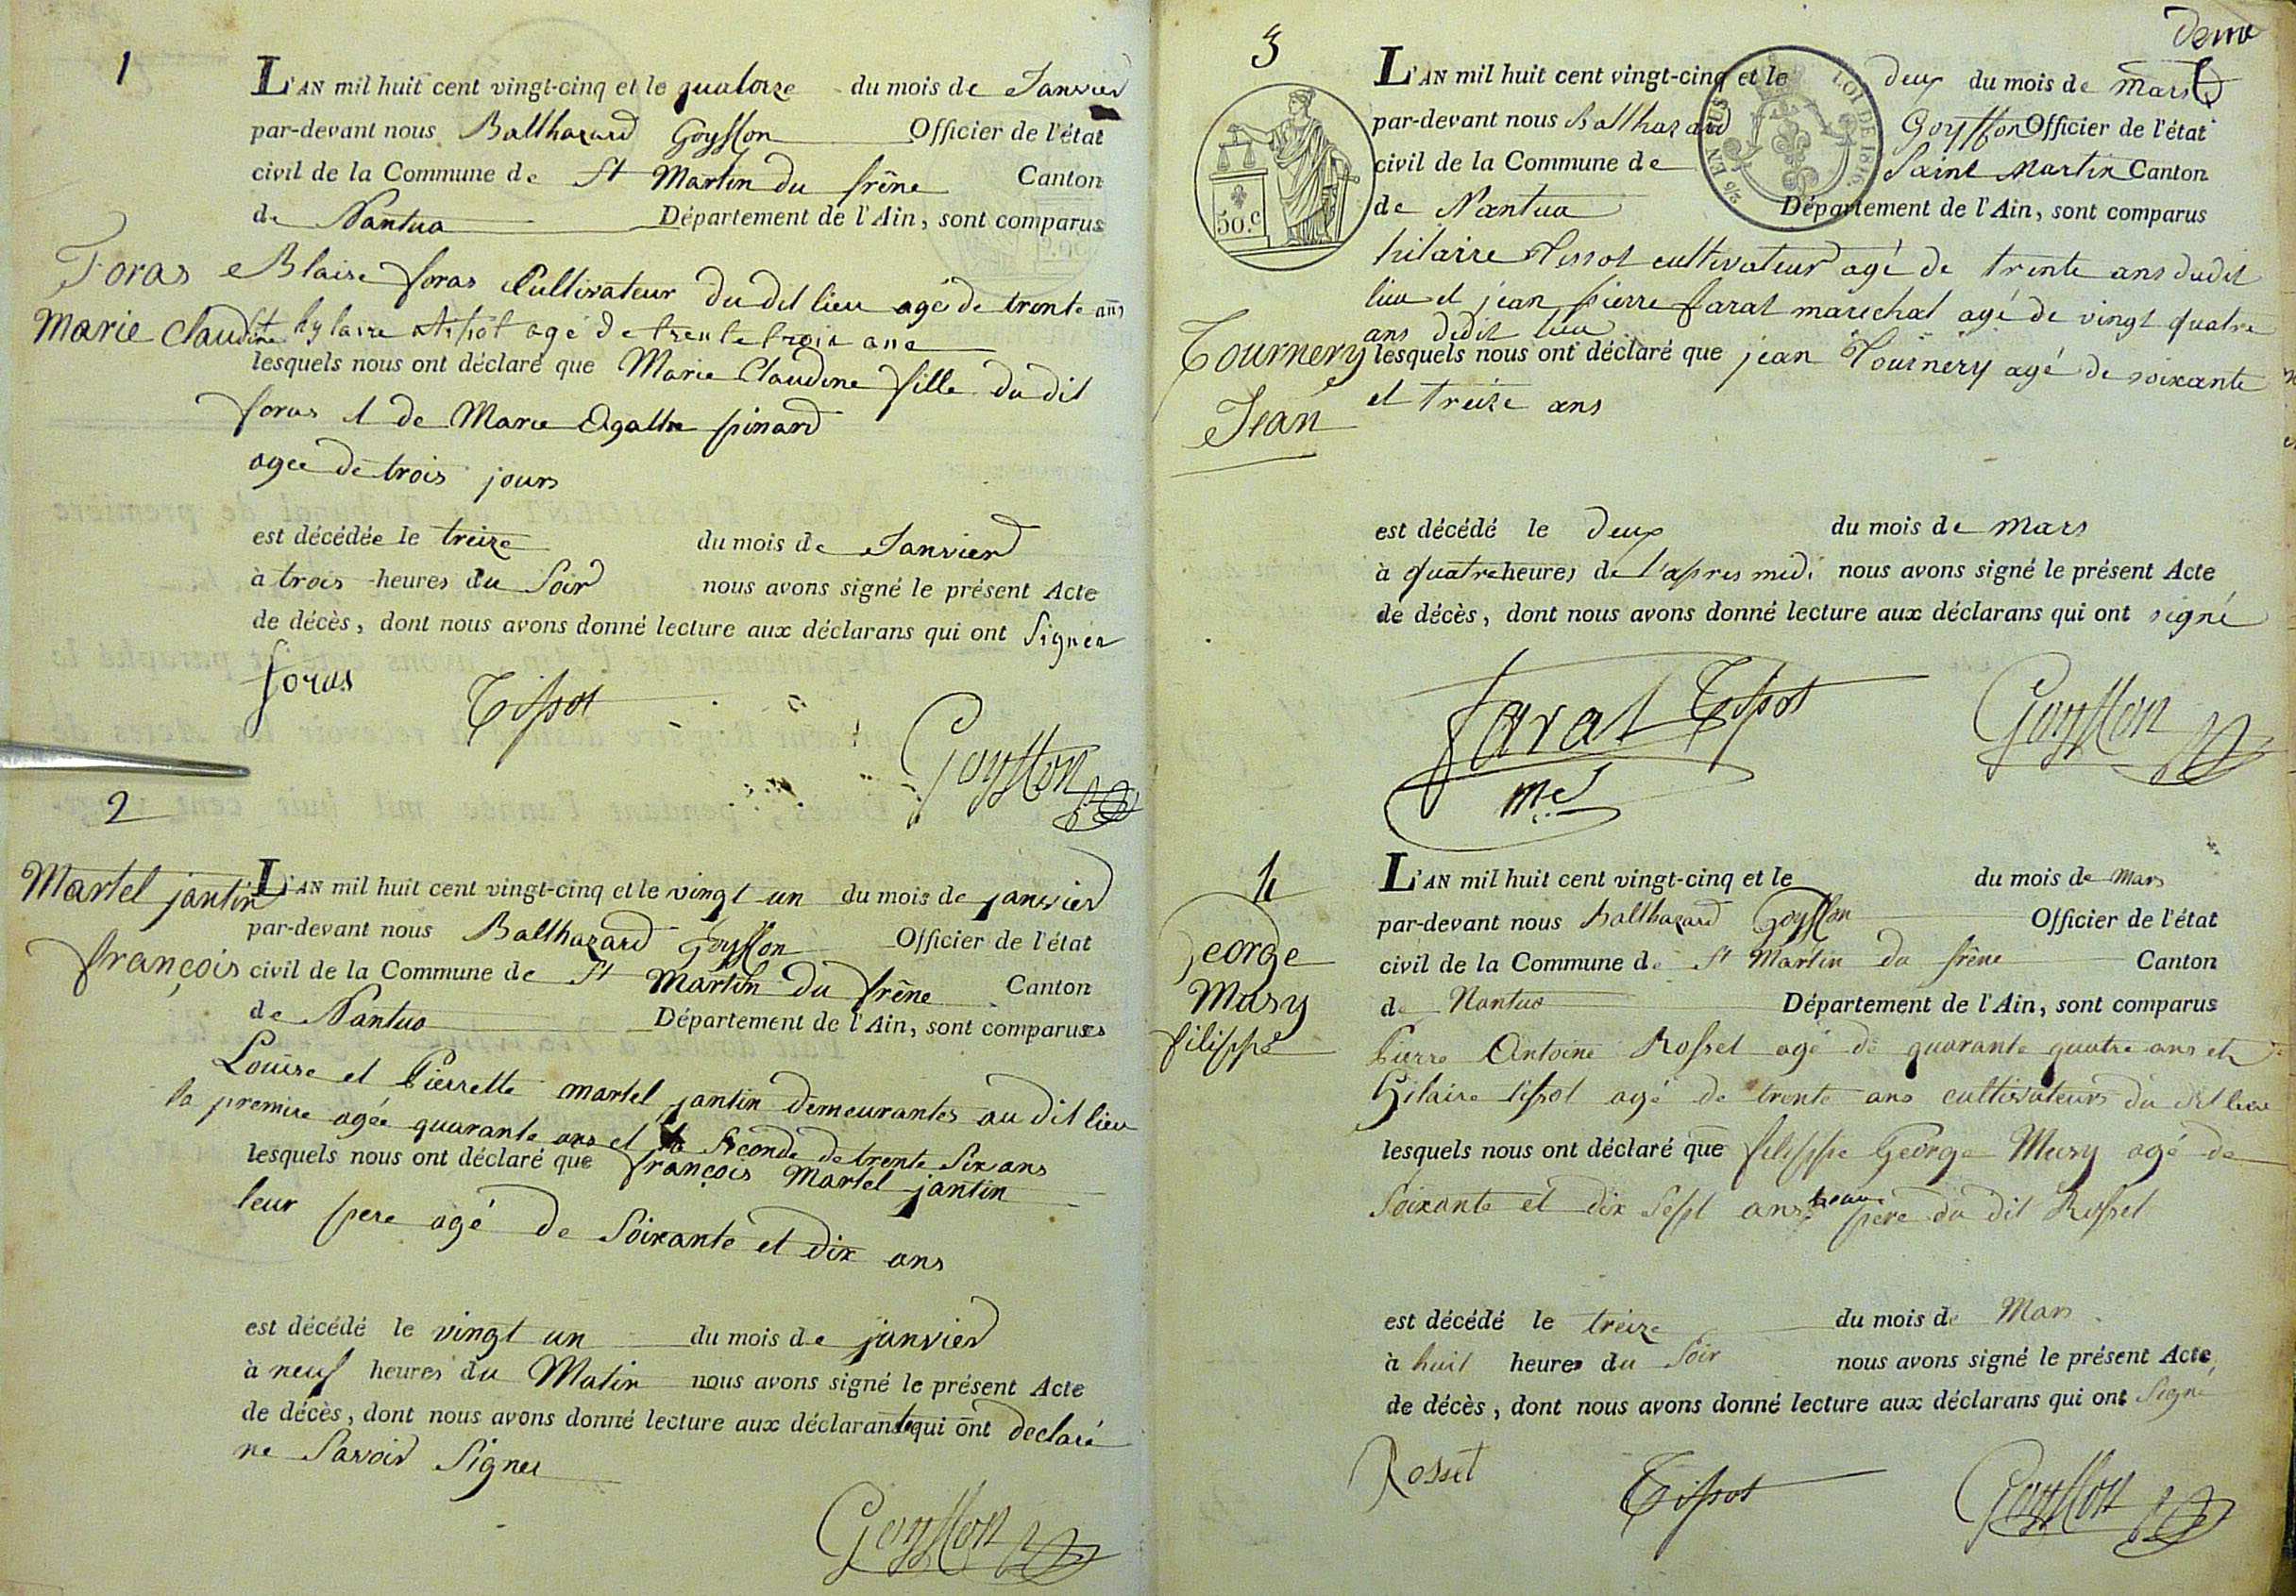 1
L'AN mil huit cent vingt-cinq et le quatorze du mois de Janvier
par-devant nous Balthazard Goysson Officier de l'état
civil de la Commune de St Martin du frêne Canton
de Nantua Département de l'Ain, sont comparus
Foras
Marie Claudine
Blaise foras Cultivateur du dit lieu agé de trente ans
et hylaire tissot agé de trente trois ans
lesquels nous ont déclaré que Marie Claudine fille du dit
foras et de Marie Agathe pinard
agée de trois jours
est décédée le treize du mois de Janvier
à trois heures du Soir nous avons signé le présent Acte
de décès, dont nous avons donné lecture aux déclarans qui ont Signés
foras Tissot Goysson
2
Martel jantin
françois
L'AN mil huit cent vingt-cinq et le vingt un du mois de janvier
par-devant nous Balthazard Goysson Officier de l'état
civil de la Commune de St Martin du frêne Canton
de Nantua Département de l'Ain, sont comparues
Louise et Pierrette martel jantin demeurantes au dit lieu
la premire agée quarante ans et la Seconde de trente Six ans
lesquels nous ont déclaré que françois Martel jantin
leur pere agé de Soixante et dix ans
est décédé le vingt un du mois de janvier
à neuf heures du Matin nous avons signé le présent Acte
de décès, dont nous avons donné lecture aux déclarantes qui ont declaré
ne Savoir Signer
Goysson
3
L'AN mil huit cent vingt-cinq et le deux du mois de mars
par-devant nous Balthazard Goysson Officier de l'état
civil de la Commune de Saint Martin Canton
de Nantua Département de l'Ain, sont comparus
50.c
LOI DE 1816.
hilaire Tissot cultivateur agé de trente ans dudit
lieu et jean pierre farat marechal agé de vingt quatre
ans dudit lieu
Tournery
Jean
lesquels nous ont déclaré que jean Tournery agé de soixante
et treize ans
est décédé le deux du mois de mars
à quatre heures de l'apres midi nous avons signé le présent Acte
de décès, dont nous avons donné lecture aux déclarans qui ont signé
farat Tissot Goysson
mel
4
George
Musy
filippe
L'AN mil huit cent vingt-cinq et le du mois de mars
par-devant nous Balthazard Goysson Officier de l'état
civil de la Commune de St Martin du frêne Canton
de Nantua Département de l'Ain, sont comparus
Pierre Antoine Rosset agé de quarante quatre ans et
Hilaire tissot agé de trente ans cultivateurs du dit lieu
lesquels nous ont déclaré que filippe George Musy agé de
Soixante et dix Sept ans beau pere du dit Rosset
est décédé le treize du mois de Mars
à huit heures du Soir nous avons signé le présent Acte
de décès, dont nous avons donné lecture aux déclarans qui ont Signé
Rosset Tissot Goysson